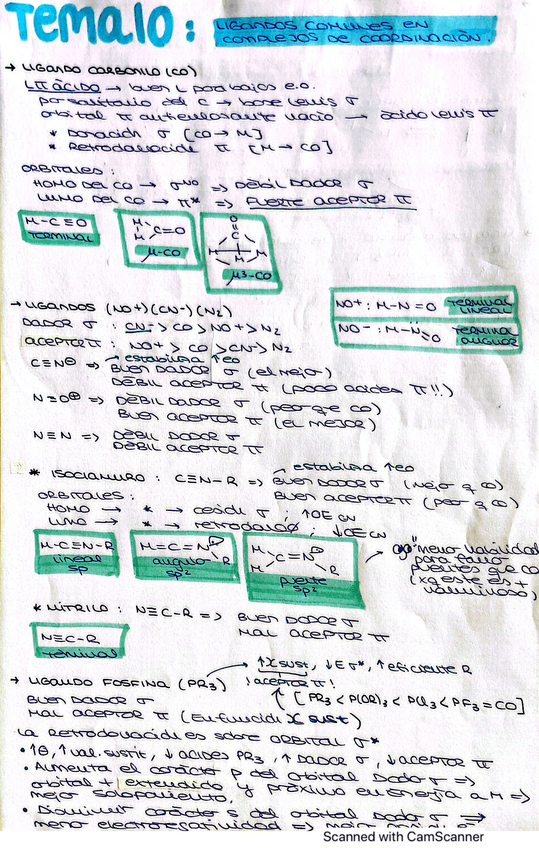 TEMA10:
LIGANDOS COMUNES EN
COMPLEJOS DE COORDINACIÓN.
→ LIGANDO CARBONILO (CO)
LΠ ÁCIDO → buen L para bajos e.o.
par solitario del C → base Lewis σ
orbital π antienlazante vacío → ácido Lewis π
* Donación σ [CO→M]
* Retrodonación π [M→CO]
ORBITALES:
HOMO DEL CO → σ => DÉBIL DADOR σ
LUMO DEL CO → π* => FUERTE ACEPTOR π
M-C≡O
TERMINAL
M
C=O
M
μ-CO
O
C
M M
M
μ3-CO
→ LIGANDOS (NO+)(CN-)(N2)
DADOR σ: CN- > CO > NO+ > N2
ACEPTOR π: NO+ > CO > CN- > N2
NO+: M-N≡O TERMINAL LINEAL
NO-: M-N=O TERMINAL ANGULAR
estabiliza ↑eo
C≡N⊖ => BUEN DADOR σ (el mejor)
DÉBIL ACEPTOR π (poca acidez π!!)
N≡O⊕ => DÉBIL DADOR σ (peor que CO)
BUEN ACEPTOR π (EL MEJOR)
N≡N => DÉBIL DADOR σ
DÉBIL ACEPTOR π
estabiliza ↑eo
* ISOCIANURO: C≡N-R => BUEN DADOR σ (mejor q CO)
ORBITALES: BUEN ACEPTOR π (peor q CO)
HOMO → * → cesión σ; ↑OE CN
LUMO → * → retrodona; ↓OE CN
M-C≡N-R
lineal
sp
M=C=N
R
angular
sp²
M
C=N
M R
puente
sp²
"menor habilidad
para formar
puentes que CO
(xq este es +
voluminoso)
* NITRILO: N≡C-R => BUEN DADOR σ
MAL ACEPTOR π
N≡C-R
terminal
→ LIGANDO FOSFINA (PR3) ↑X sust, ↓E σ*, ↑eficiente R
¡aceptor π!
BUEN DADOR σ [PR3 < P(OR)3 < PCl3 < PF3 = CO]
MAL ACEPTOR π (En función X sust)
La Retrodonación es sobre ORBITAL σ*
• ↑θ, ↑vol. sustit, ↓acidez PR3, ↑DADOR σ, ↓ACEPTOR π
• Aumenta el carácter p del orbital Dador σ =>
orbital + extendido y próximo en energía a M =>
mejor solapamiento.
• Disminuir carácter s del orbital Dador σ =>
menor electronegatividad =>
Scanned with CamScanner